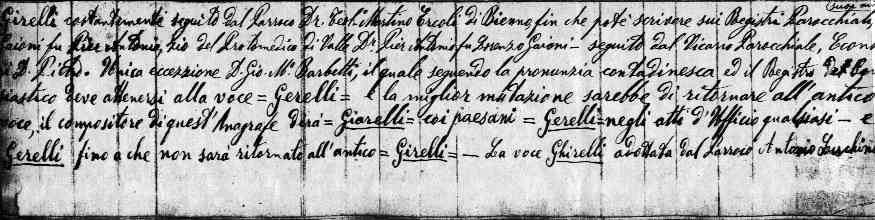 Girelli costantemente seguito dal Parroco Dr. Teol. Martino Ercoli di Bienno, fin che poté scrivere sui Registri Parocchiali,
Gaioni fu Pier Antonio, zio del Protomedico di Valle Dr. Pier Antonio fu Lorenzo Gaioni – seguito dal Vicario Parocchiale, Econo
D. Pietro. Unica eccezzione D. Gio. Ma. Barbetti, il quale seguendo la pronunzia contadinesca ed il Registro
siastico deve attenersi alla voce = Gerelli = e la miglior mutazione sarebbe di ritornare all'antico
voce, il compositore di quest'Anagrafe dirà = Giarelli = coi paesani = Gerelli = negli atti d'Ufficio qualsiasi – e
Gerelli fino a che non sarà ritornato all'antico = Girelli = – La voce Ghirelli adottata dal Parroco Antonio